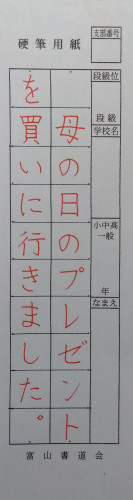 硬筆用紙
支部番号
段級位
段級
学校名
小中高
一般
年
なまえ
母の日のプレゼント
を買いに行きました。
富山書道会